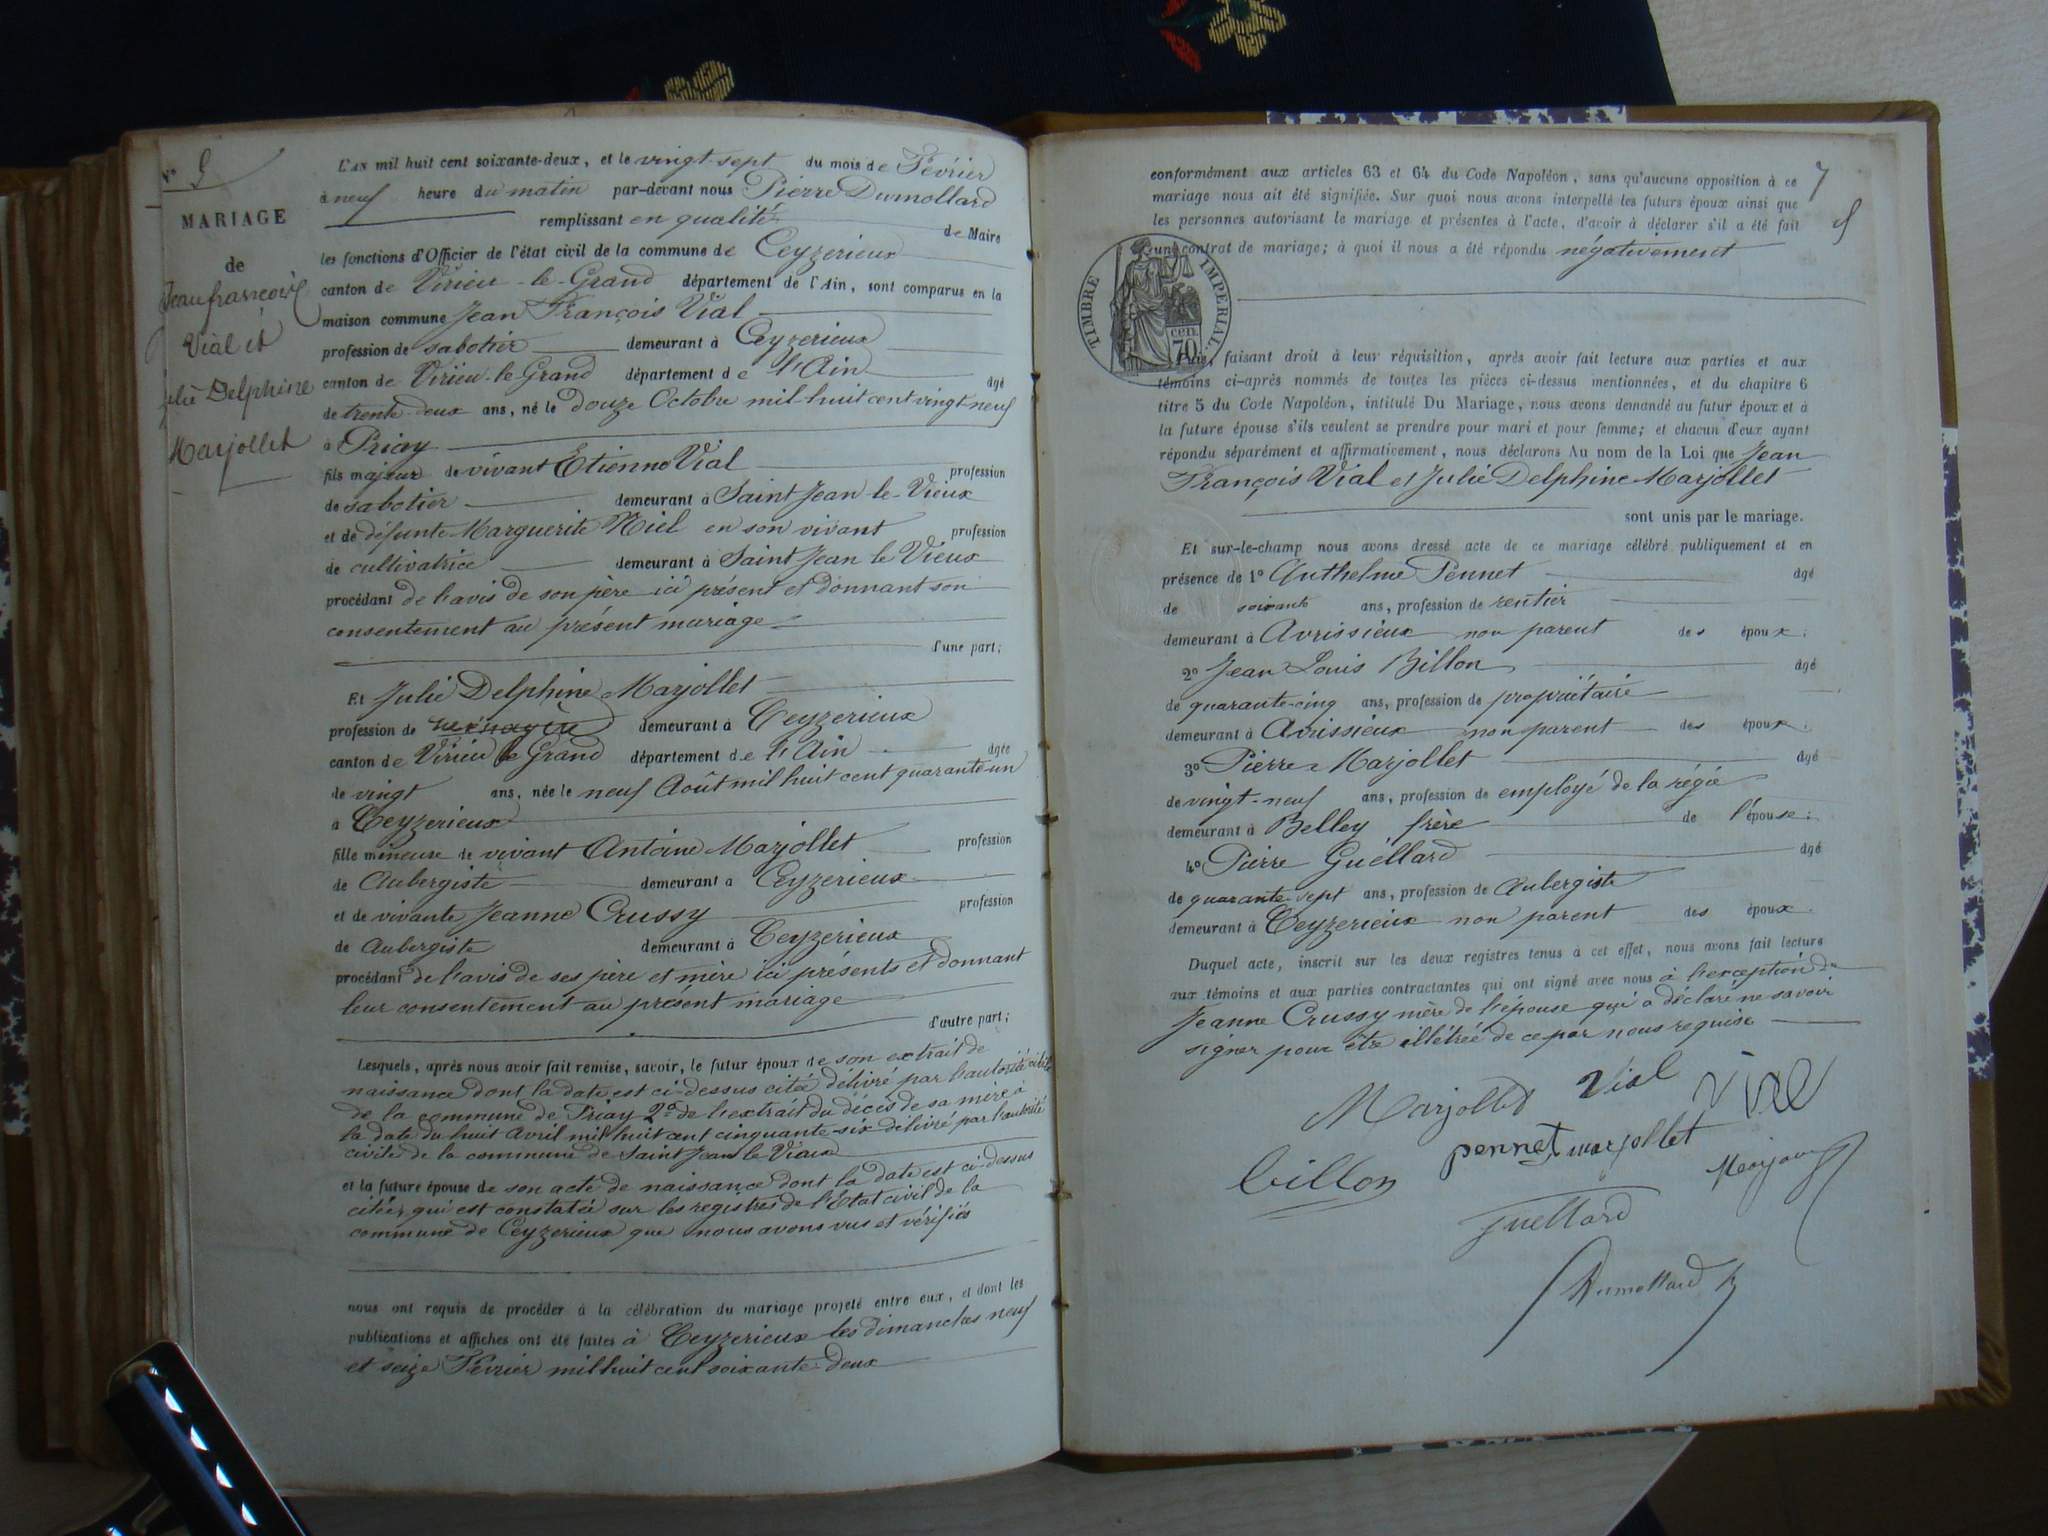 N° 5
MARIAGE
de
Jean françois
Vial et
Julie Delphine
Marjollet
L'AN mil huit cent soixante-deux, et le vingt-sept du mois de Février
à neuf heure du matin par-devant nous Pierre Dumollard
remplissant en qualité de Maire
les fonctions d'Officier de l'état civil de la commune de Ceyzerieux
canton de Virieu-le-Grand département de l'Ain, sont comparus en la
maison commune Jean François Vial
profession de sabotier demeurant à Ceyzerieux
canton de Virieu-le-Grand département de l'Ain âgé
de trente-deux ans, né le douze Octobre mil huit cent vingt neuf
à Priay
fils majeur de vivant Etienne Vial profession
de sabotier demeurant à Saint Jean-le-Vieux
et de défunte Marguerite Niel en son vivant profession
de cultivatrice demeurant à Saint Jean le Vieux
procédant de l'avis de son père ici présent et donnant son
consentement au présent mariage
d'une part;
Et Julie Delphine Marjollet
profession de demeurant à Ceyzerieux
canton de Virieu le Grand département de l'Ain âgée
de vingt ans, née le neuf Août mil huit cent quarante-un
à Ceyzerieux
fille mineure de vivant Antoine Marjollet profession
de Aubergiste demeurant à Ceyzerieux
et de vivante Jeanne Crussy profession
de Aubergiste demeurant à Ceyzerieux
procédant de l'avis de ses père et mère ici présents et donnant
leur consentement au présent mariage
d'autre part;
Lesquels, après nous avoir fait remise, savoir, le futur époux de son extrait de
naissance dont la date est ci-dessus citée délivré par l'autorité civile
de la commune de Priay 2° de l'extrait du décès de sa mère à
la date du huit Avril mil huit cent cinquante-six délivré par l'autorité
civile de la commune de Saint Jean le Vieux
et la future épouse de son acte de naissance dont la date est ci-dessus
citée, qui est constatée sur les registres de l'Etat civil de la
commune de Ceyzerieux que nous avons vus et vérifiés
nous ont requis de procéder à la célébration du mariage projeté entre eux, et dont les
publications et affiches ont été faites à Ceyzerieux les dimanches neuf
et seize Février mil huit cent soixante-deux
7
conformément aux articles 63 et 64 du Code Napoléon, sans qu'aucune opposition à ce
mariage nous ait été signifiée. Sur quoi nous avons interpellé les futurs époux ainsi que
les personnes autorisant le mariage et présentes à l'acte, d'avoir à déclarer s'il a été fait
un contrat de mariage; à quoi il nous a été répondu négativement
TIMBRE IMPERIAL
cen. 70
Puis, faisant droit à leur réquisition, après avoir fait lecture aux parties et aux
témoins ci-après nommés de toutes les pièces ci-dessus mentionnées, et du chapitre 6
titre 5 du Code Napoléon, intitulé Du Mariage, nous avons demandé au futur époux et à
la future épouse s'ils veulent se prendre pour mari et pour femme; et chacun d'eux ayant
répondu séparément et affirmativement, nous déclarons Au nom de la Loi que Jean
François Vial et Julie Delphine Marjollet
sont unis par le mariage.
Et sur-le-champ nous avons dressé acte de ce mariage célébré publiquement et en
présence de 1° Anthelme Pennet âgé
de soixante ans, profession de rentier
demeurant à Avrissieux non parent des époux;
2° Jean Louis Billon âgé
de quarante-cinq ans, profession de propriétaire
demeurant à Avrissieux non parent des époux;
3° Pierre Marjollet âgé
de vingt-neuf ans, profession de employé de la régie
demeurant à Belley frère de l'épouse;
4° Pierre Guéllard âgé
de quarante-sept ans, profession de Aubergiste
demeurant à Ceyzerieux non parent des époux.
Duquel acte, inscrit sur les deux registres tenus à cet effet, nous avons fait lecture
aux témoins et aux parties contractantes qui ont signé avec nous à l'exception de
Jeanne Crussy mère de l'épouse qui a déclaré ne savoir
signer pour être illétrée de ce par nous requise
Marjollet Vial Vial
pennet marjollet
billon
Guellard
Dumollard